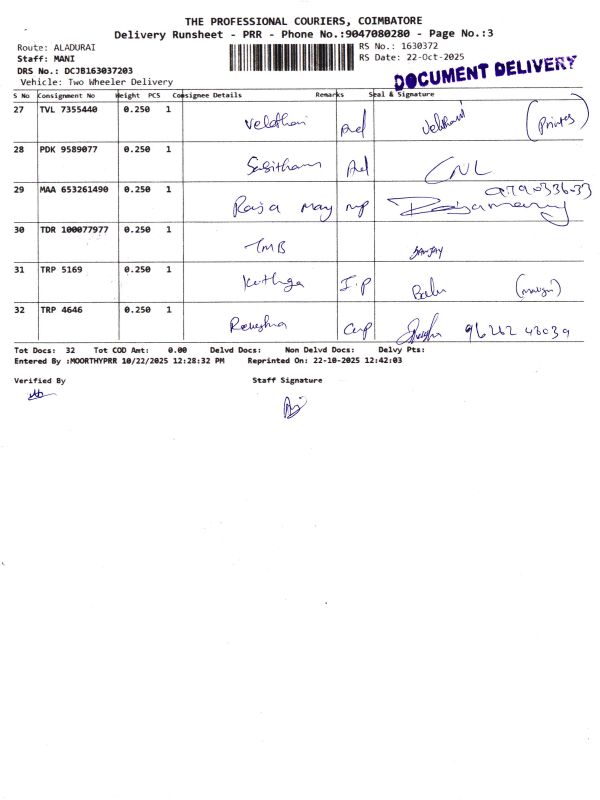 THE PROFESSIONAL COURIERS, COIMBATORE
Delivery Runsheet - PRR - Phone No.:9047080280 - Page No.:3
Route: ALADURAI RS No.: 1630372
Staff: MANI RS Date: 22-Oct-2025
DRS No.: DCJB163037203
Vehicle: Two Wheeler Delivery
DOCUMENT DELIVERY
S No Consignment No Weight PCS Consignee Details Remarks Seal & Signature
27 TVL 7355440 0.250 1
28 PDK 9589077 0.250 1
29 MAA 653261490 0.250 1 Raja
30 TDR 100077977 0.250 1 TMB SANJAY
31 TRP 5169 0.250 1 I.P Babu
32 TRP 4646 0.250 1
Tot Docs: 32 Tot COD Amt: 0.00 Delvd Docs: Non Delvd Docs: Delvy Pts:
Entered By :MOORTHYPRR 10/22/2025 12:28:32 PM Reprinted On: 22-10-2025 12:42:03
Verified By Staff Signature